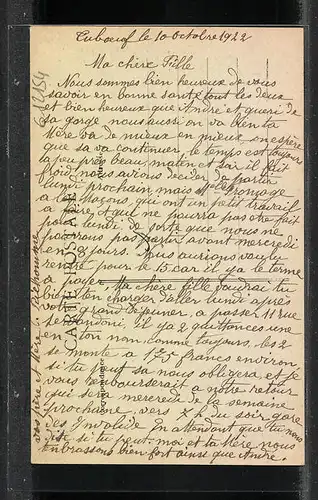 Cuboeuf le 10 octobre 1922
Ma chère Fille
Nous sommes bien heureux de vous
savoir en bonne santé tout les deux
et bien heureux que André et queri de
sa gorge nous aussi on va bien ta
Mère va de mieux en mieux, on espère
que sa va continuer, le temps est toujours
a peu près beau, matin et soir il fait
froid, nous avions décider de partir
lundi prochain, mais
a les Maçons, qui ont un petit travail
a faire, et qui ne pourra pas être fait
pour lundi, de sorte que nous ne
pourrons pas partir avant mercredi
en 8 jours. Nous aurions voulu
rentre pour le 15, car il y a le terme
a payer, Ma chère fille voudrai tu
bien te en charger d'aller lundi après
votre grand déjeuner, a passer 11 rue
se Dandoni, il y a 2 quittances une
en ton nom comme toujours, les 2
se monte a 175 francs environ
si tu peut sa nous obligera et je
vous rembourserait a notre retour
qui sera mercredi de la semaine
prochaine, vers 7 h du soir gare
des Invalide, En attendant que tu nous
dise si tu peut, moi et ta Mère nous
embrassons bien fort ainsi que André.
vos père et Mère
CARTE
Correspondance